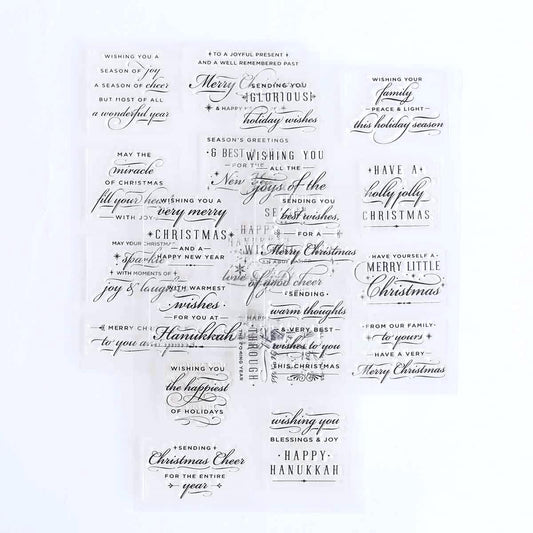 WISHING YOU A
SEASON OF joy
A SEASON OF cheer
BUT MOST OF ALL
a wonderful year
TO A JOYFUL PRESENT
AND A WELL REMEMBERED PAST
Merry
& HAPPY
SENDING YOU
GLORIOUS
holiday wishes
WISHING YOUR
family
PEACE & LIGHT
this holiday season
MAY THE
miracle
OF CHRISTMAS
fill your
WITH JOY
SEASON'S GREETINGS
& BEST
FOR THE
New
WISHING YOU
ALL THE
joys of the
HAVE A
holly jolly
CHRISTMAS
WISHING YOU A
very merry
CHRISTMAS
AND A
HAPPY NEW YEAR
SENDING YOU
best wishes,
FOR A
Merry Christmas
of good cheer
MAY YOUR
sparkle
WITH MOMENTS OF
joy &
HAVE YOURSELF A
MERRY LITTLE
Christmas
WITH WARMEST
wishes
FOR YOU AT
Hanukkah
SENDING
warm thoughts
& VERY BEST
wishes to you
THIS CHRISTMAS
MERRY
to you
THROUGH
FROM OUR FAMILY
to yours
HAVE A VERY
Merry Christmas
WISHING YOU
the happiest
OF HOLIDAYS
wishing you
BLESSINGS & JOY
HAPPY
HANUKKAH
SENDING
Christmas Cheer
FOR THE ENTIRE
year